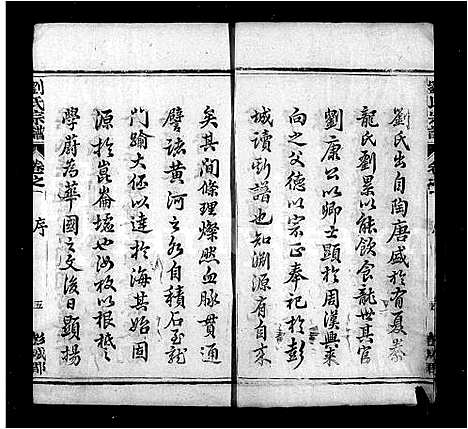 劉氏宗譜
劉氏出自陶唐盛於有夏豢
龍氏劉累以能飲食龍世其官
劉康公以卿士顯於周漢興萊
向之父德以宗正奉祀於彭
城讀斯譜也知淵源有自來
矣其間條理燦然血脉貫通
譬諸黃河之水自積石至龍
門踰大伾以達於海其始固
源於崑崙墟也汝枚以根柢之
學蔚為華國之文後日顯揚
劉氏宗譜
卷之一
序
五
彭城郡